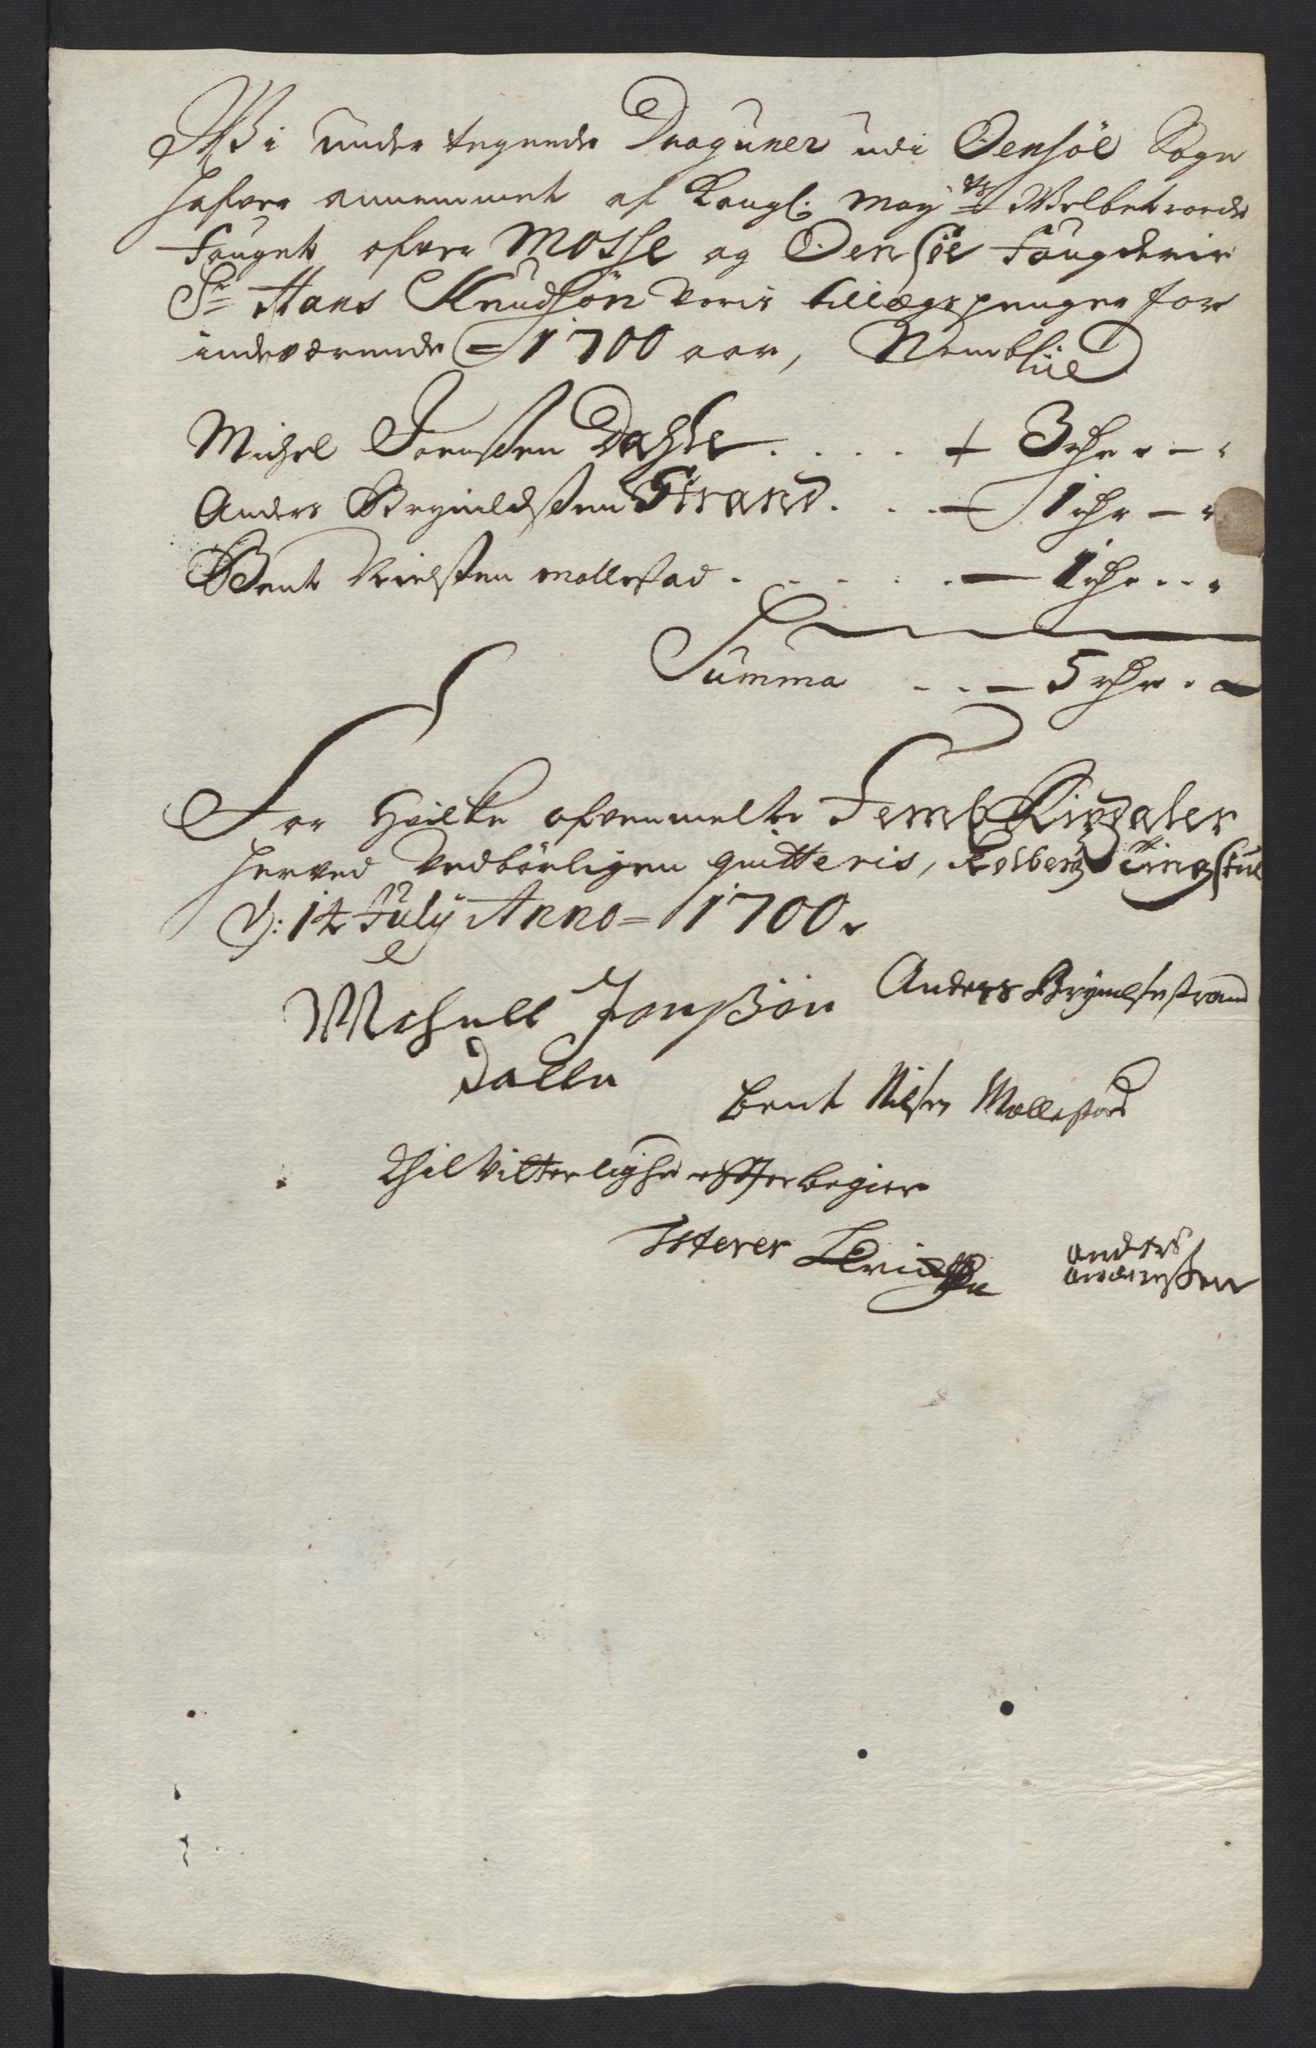 Wi under tegnede Draguner udi Oensöe Sogn
hafver annammet af Kongl: May:ts Welbetroede
Fouget ofver Mosse og Oensöe Fougderie
Sr Hans Knudsön voris tillægspenger for
indeværende = 1700 aar, Nemblig
Michel Joenssen Dahle . . . . + 3 rdr - -
Anders Brynildssen Strand . . . — 1 rdr —
Bent Nielssen mallestad . . . . . — 1 rdr . . .
Summa . . — 5 rdr . —
For hvilke ofvenmelte Femb Rixdaler
herved vedbörligen quitteris, Kolberg Tingstue
d: 14 July Anno = 1700.
Michell Jonßön Anders Brynelsen strand
Dalle
bent Nilsen Mallestad
Thil Vitterlighed efter begier
Lvridssen anders
anderssen